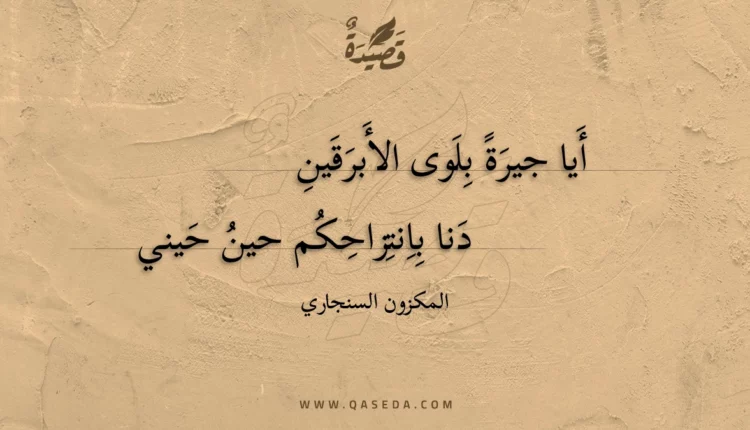 قَصِيدَةٌ
أَيا جيرَةً بِلَوى الأَبرَقَينِ
دَنا بِاِنتِزاحِكُم حينُ حَيني
المكزون السنجاري
WWW.QASEDA.COM